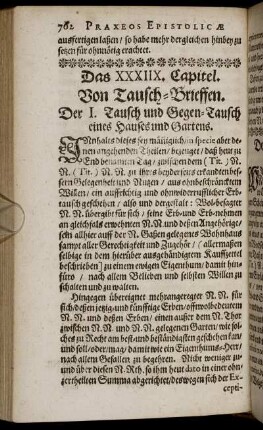 762 PRAXEOS EPISTOLICÆ
ausfertigen laßen / so habe mehr dergleichen hinbey zu
setzen für ohnnötig erachtet.
Das XXXIIX. Capitel.
Von Tausch-Brieffen.
Der I. Tausch und Gegen-Tausch
eines Hauses und Gartens.
INnhalts dieses sey männiglichen
denen angehenden Theilen / bezeuget / daß heut zu
End benannten Tag / zwischen dem (Tit.) N.
N. / (Tit.) N. N. zu ihrer beyderseits erkandten bes-
sern Gelegenheit und Nutzen / aus ohnbeschräncktem
Willen / ein auffrichtig und ohnwiderrufflicher Erb-
tausch geschehen / also und dergestalt: Wol-besagter
N. N. übergibt für sich / seine Erb- und Erb-nehmen
an gleichfals erwehnten N. N. und deßen Angehörige /
sein allhier auff der N. Gaßen gelegenes Wohnhaus
sampt aller Gerechtigkeit und Zugehör / (allermaßen
selbige in dem hierüber ausgehändigtem Kauffzettel
beschrieben) zu einem ewigen Eigenthum / damit hin-
füro / nach allem Belieben und selbsten Willen zu
schalten und zu walten.
Hingegen übereignet mehrangeregter N. N. für
sich / deßen jetzig- und künfftige Erben / offtwolbedeutem
N. N. und deßen Erben / einen außer dem N. Thor
zwischen N. N. und N. N. gelegenen Garten / wie sol-
ches zu Recht am best- und beständigsten geschehen kan
und soll / oder mag / damit wie ein Eigenthums-Herr /
nach allem Gefallen zu begehen. Nicht weniger zu-
und über diesen N. Rth. so ihm heut dato in einer ohn-
zertheilten Summa abgerichtet / deswegen sich der Ex-
cepti-